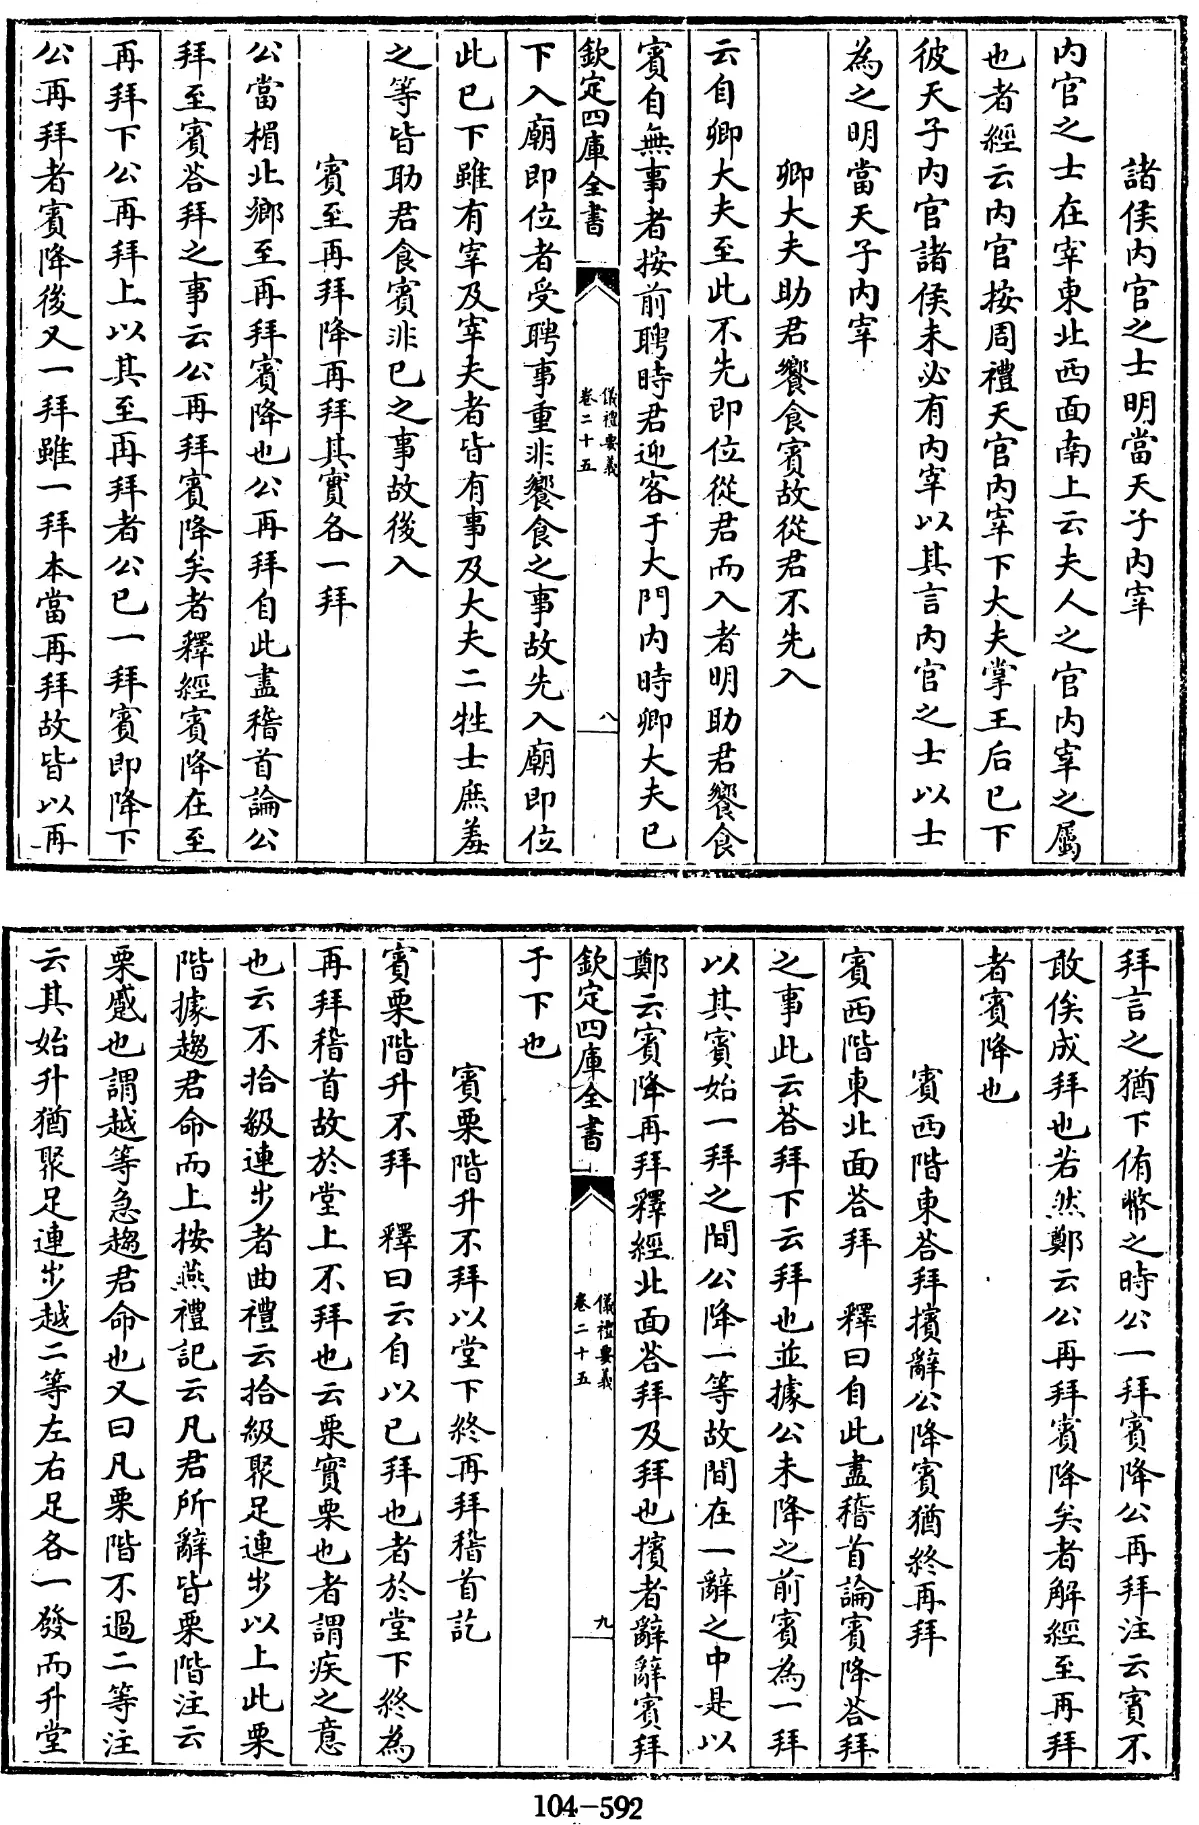 諸侯内官之士明當天子内宰
内官之士在宰東北西面南上云夫人之官内宰之屬
也者經云内官按周禮天官内宰下大夫掌王后已下
彼天子内官諸侯未必有内宰以其言内官之士以士
為之明當天子内宰
卿大夫助君饗食賓故從君不先入
云自卿大夫至此不先即位從君而入者明助君饗食
賓自無事者按前聘時君迎客于大門内時卿大夫已
欽定四庫全書
儀禮要義
卷二十五
八
下入廟即位者受聘事重非饗食之事故先入廟即位
此已下雖有宰及宰夫者皆有事及大夫二牲士庶羞
之等皆助君食賓非已之事故後入
賓至再拜降再拜其實各一拜
公當楣北鄉至再拜賓降也公再拜自此盡稽首論公
拜至賓荅拜之事云公再拜賓降矣者釋經賓降在至
再拜下公再拜上以其至再拜者公已一拜賓即降下
公再拜者賓降後又一拜雖一拜本當再拜故皆以再
拜言之猶下侑幣之時公一拜賓降公再拜注云賓不
敢俟成拜也若然鄭云公再拜賓降矣者解經至再拜
者賓降也
賓西階東荅拜擯辭公降賓猶終再拜
賓西階東北面荅拜 釋曰自此盡稽首論賓降荅拜
之事此云荅拜下云拜也並據公未降之前賓為一拜
以其賓始一拜之間公降一等故間在一辭之中是以
鄭云賓降再拜釋經北面荅拜及拜也擯者辭辭賓拜
欽定四庫全書
儀禮要義
卷二十五
九
于下也
賓栗階升不拜以堂下終再拜稽首訖
賓栗階升不拜 釋曰云自以已拜也者於堂下終為
再拜稽首故於堂上不拜也云栗實栗也者謂疾之意
也云不拾級連步者曲禮云拾級聚足連步以上此栗
階據趨君命而上按燕禮記云凡君所辭皆栗階注云
栗蹙也謂越等急趨君命也又曰凡栗階不過二等注
云其始升猶聚足連步越二等左右足各一發而升堂
104-592